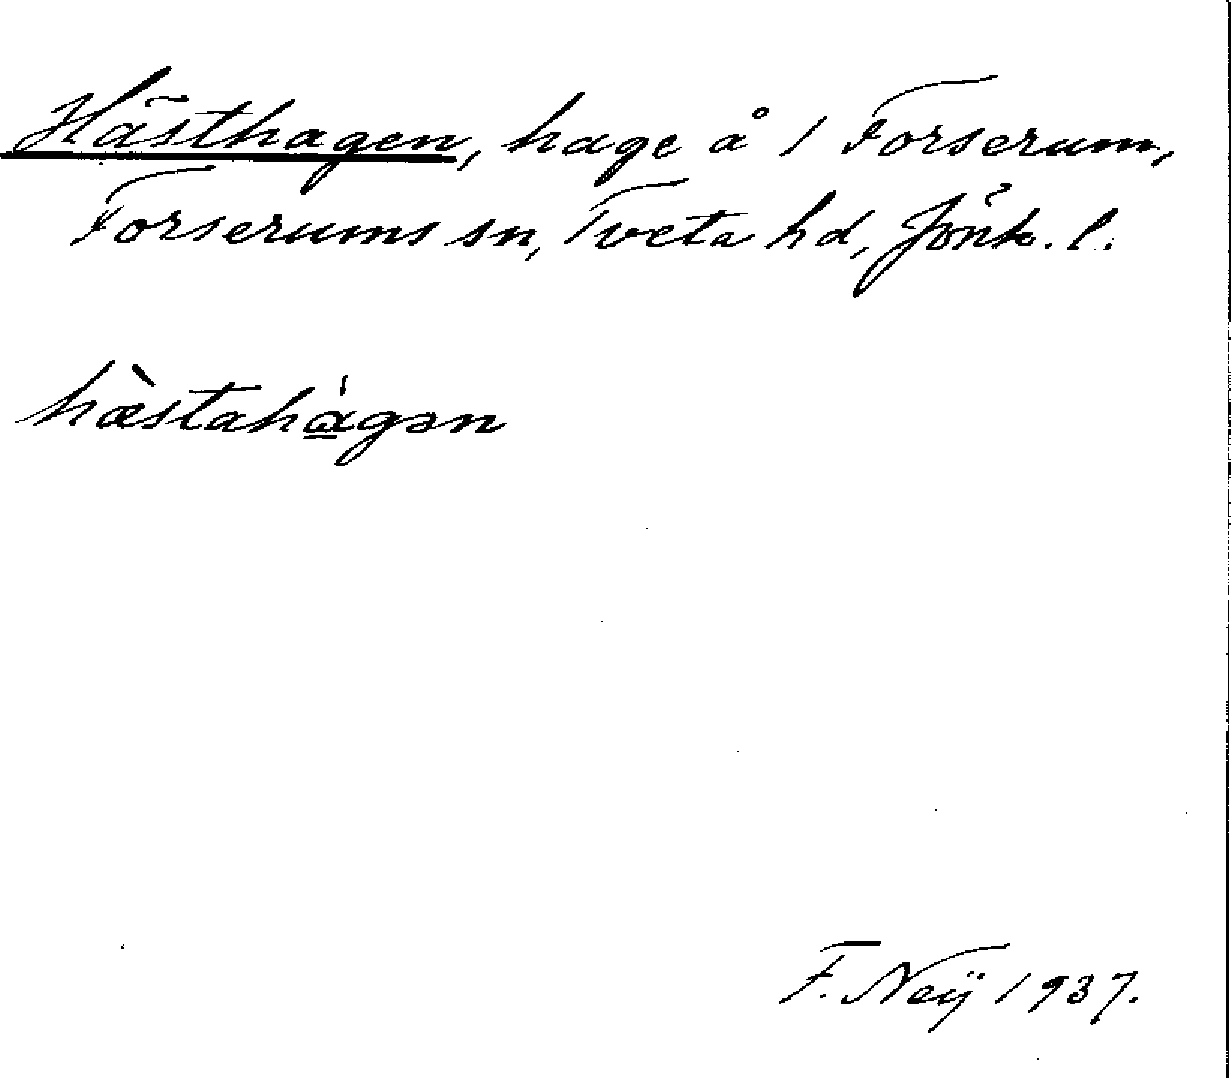 Hästhagen, hage å 1 Forserum,
Forserums sn, Tveta hd, Jönk. l.
hæ̀stahá̱gən
F. Neÿ 1937.